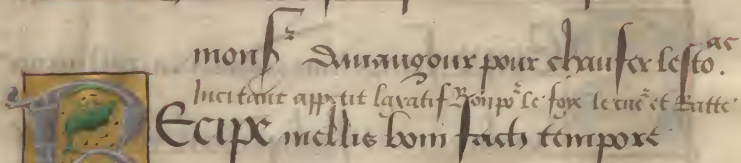 mons^r davaugour pour chaufer lesto.^ac
Incitant appetit laxatif Bon po^r le foye le cue^r et Ratte
RECIPE mellis boni facti tempore